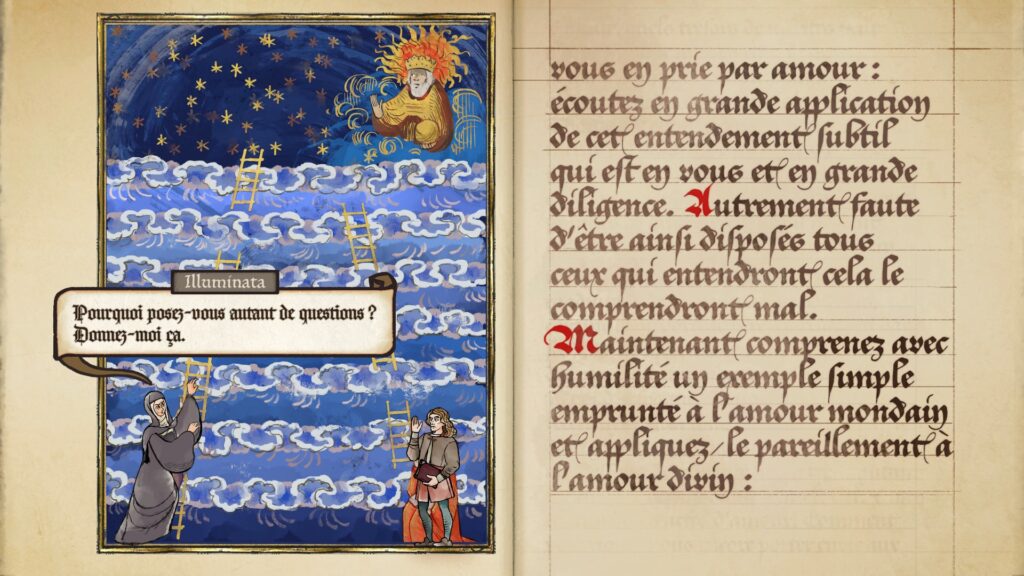 Illuminata
Pourquoi posez-vous autant de questions ?
Donnez-moi ça.
vous en prie par amour :
écoutez en grande application
de cet entendement subtil
qui est en vous et en grande
diligence. Autrement faute
d'être ainsi disposés tous
ceux qui entendront cela le
comprendront mal.
Maintenant comprenez avec
humilité un exemple simple
emprunté à l'amour mondain
et appliquez-le pareillement à
l'amour divin :